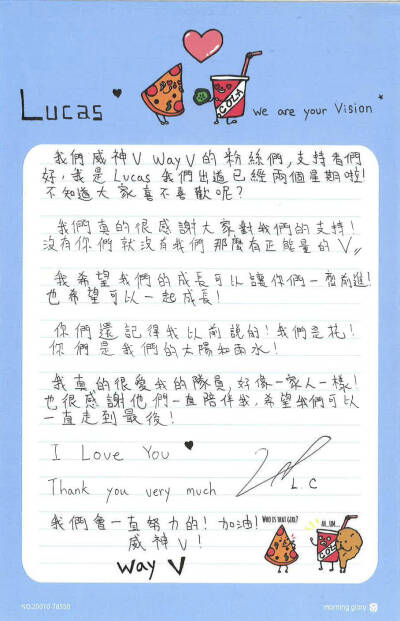 Lucas
COLA
We are your Vision
我們威神V WayV的粉絲們,支持者們
好,我是Lucas 我們出道已經兩個星期啦!
不知道大家喜不喜歡呢?
我們真的很感謝大家對我們的支持!
沒有你們就沒有我們 那麼有正能量的V
我希望我們的成長可以讓你們一齊前進!
也希望可以一起成長!
你們還記得我以前說的!我們是花!
你們是我們的太陽和雨水!
我真的很愛我的隊員,好像一家人一樣!
也很感謝他們一直陪伴我,希望我們可以
一直走到最後!
I Love You
Thank you very much
L.C
我們會一直努力的!加油!
威神V!
Way V
WHO IS THAT GIRL?
COLA
NO.20010-78550
morning glory